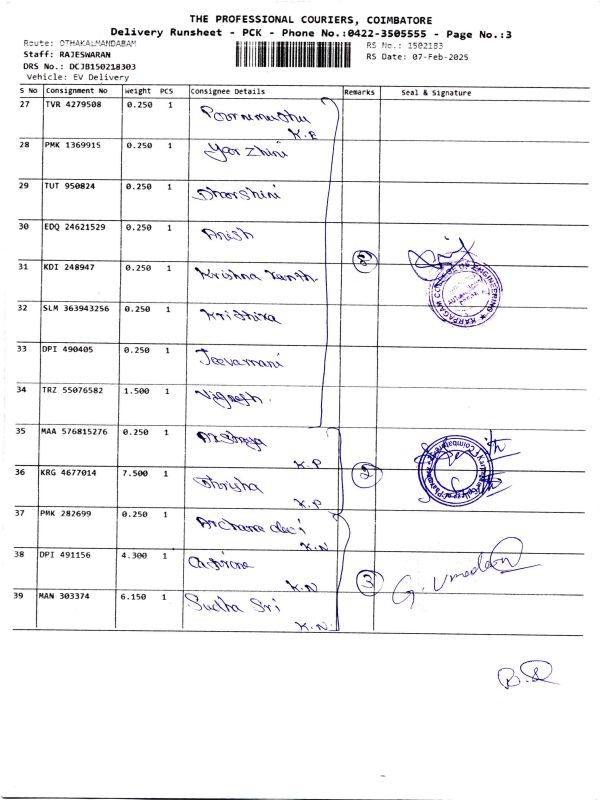 THE PROFESSIONAL COURIERS, COIMBATORE
Delivery Runsheet - PCK - Phone No.:0422-3505555 - Page No.:3
Route: OTHAKALMANDABAM
RS No.: 1502183
Staff: RAJESWARAN
RS Date: 07-Feb-2025
DRS No.: DCJB150218303
Vehicle: EV Delivery
S No Consignment No weight PCS Consignee Details Remarks Seal & Signature
27 TVR 4279508 0.250 1
K.E
28 PMK 1369915 0.250 1 Yazhini
29 TUT 950824 0.250 1 Dharshini
30 EDQ 24621529 0.250 1 Anish
31 KDI 248947 0.250 1 Krishna
KARPAGAM COLLEGE OF ENGINEERING
32 SLM 363943256 0.250 1
33 DPI 490405 0.250 1 Jeevamani
34 TRZ 55076582 1.500 1 Vignesh
35 MAA 576815276 0.250 1
K.P
2
36 KRG 4677014 7.500 1
K.P
37 PMK 282699 0.250 1 Archana devi
K.N
38 DPI 491156 4.300 1
K.N
3
39 MAN 303374 6.150 1 Sudha Sri
K.N.